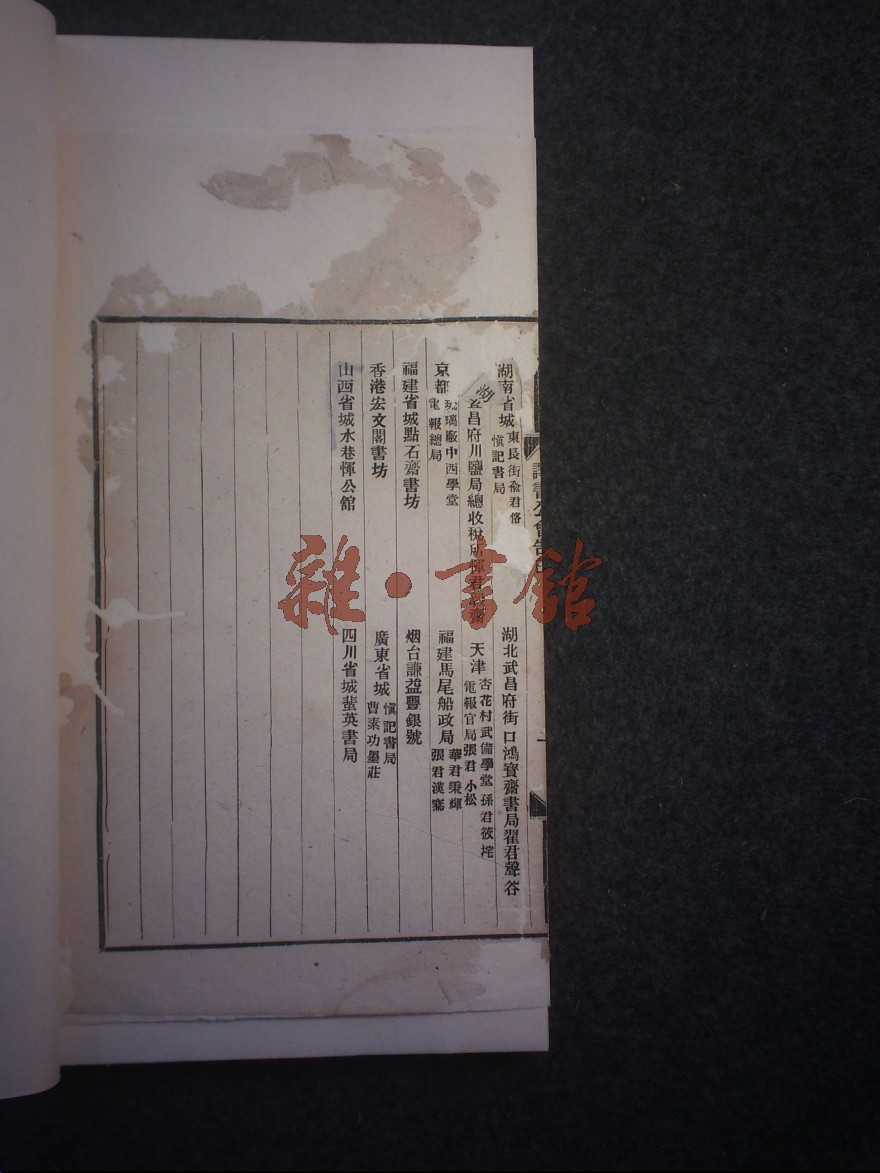 湖南省城 東長街俞君恪 慎記書局 湖北武昌府街口鴻寶齋書局翟君聲谷
昌府川鹽局總收稅所惲君 天津 杏花村武備學堂孫君筱垞 電報官局張君小松
京都 琉璃廠中西學堂 電報總局 福建馬尾船政局 華君秉輝 張君漢騫
福建省城點石齋書坊 烟台謙益豐銀號
香港宏文閣書坊 廣東省城 慎記書局 曹素功墨莊
山西省城水巷惲公館 四川省城蜚英書局
雜·書館